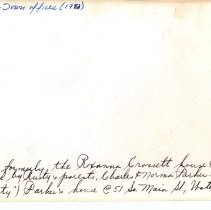 Town offices (1981)
formerly, the Roxanna Crossett house &
by Rusty's parents, Charles & Norma Parker
ty") Parker's home @ 51 So. Main St,